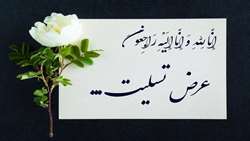 إنّا لِلّهِ وَإنّا إلَيْهِ رَاجِعُونَ
عرض تسلیت...